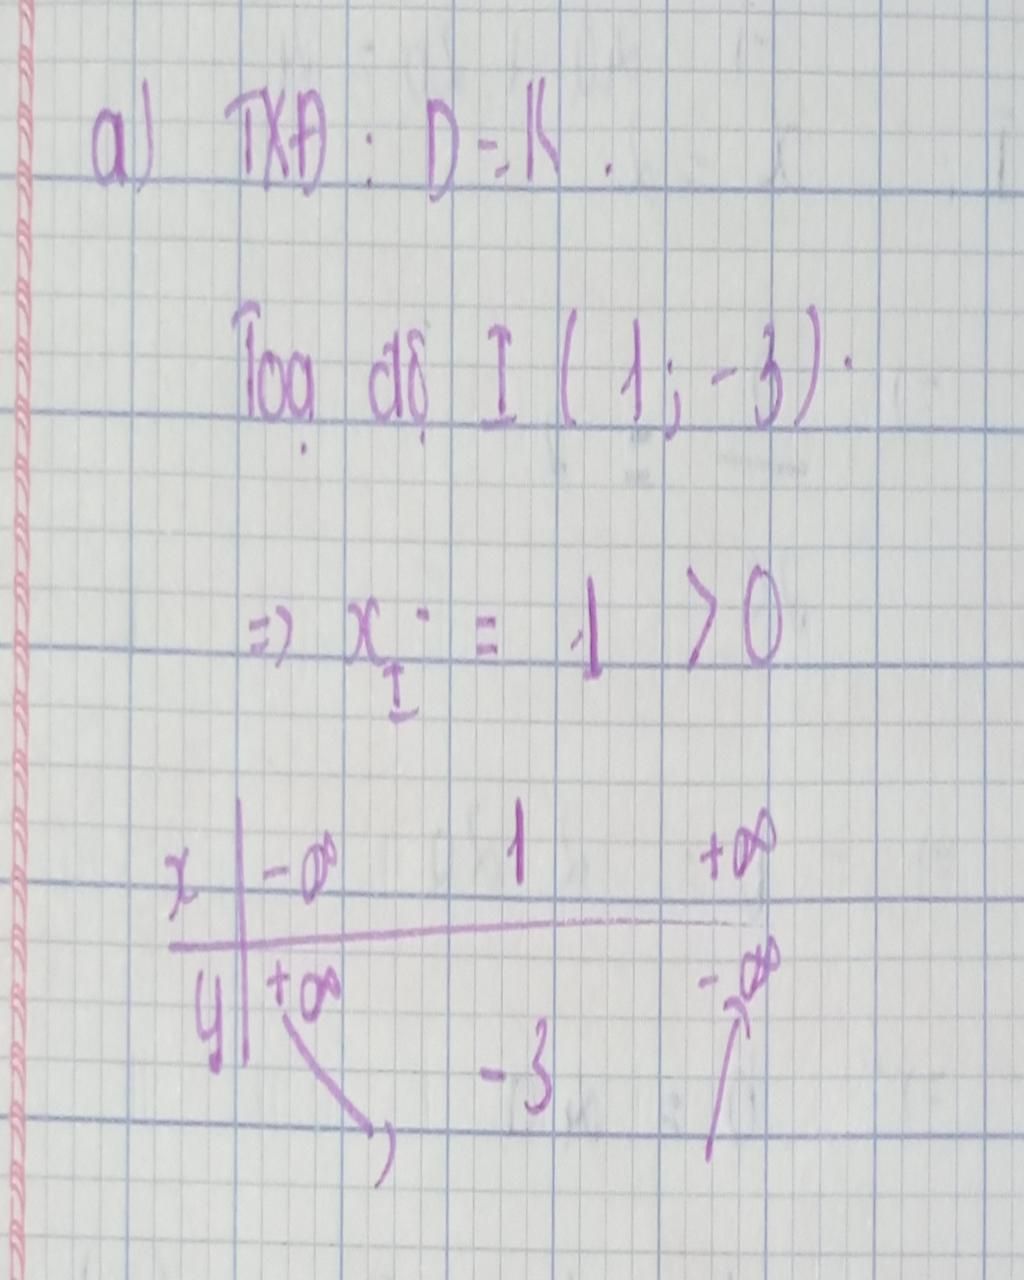 a) TXĐ: D = R.
Toạ độ I (1; -3).
=> x_I = 1 > 0
x | -∞ 1 +∞
y | +∞ -3 -∞